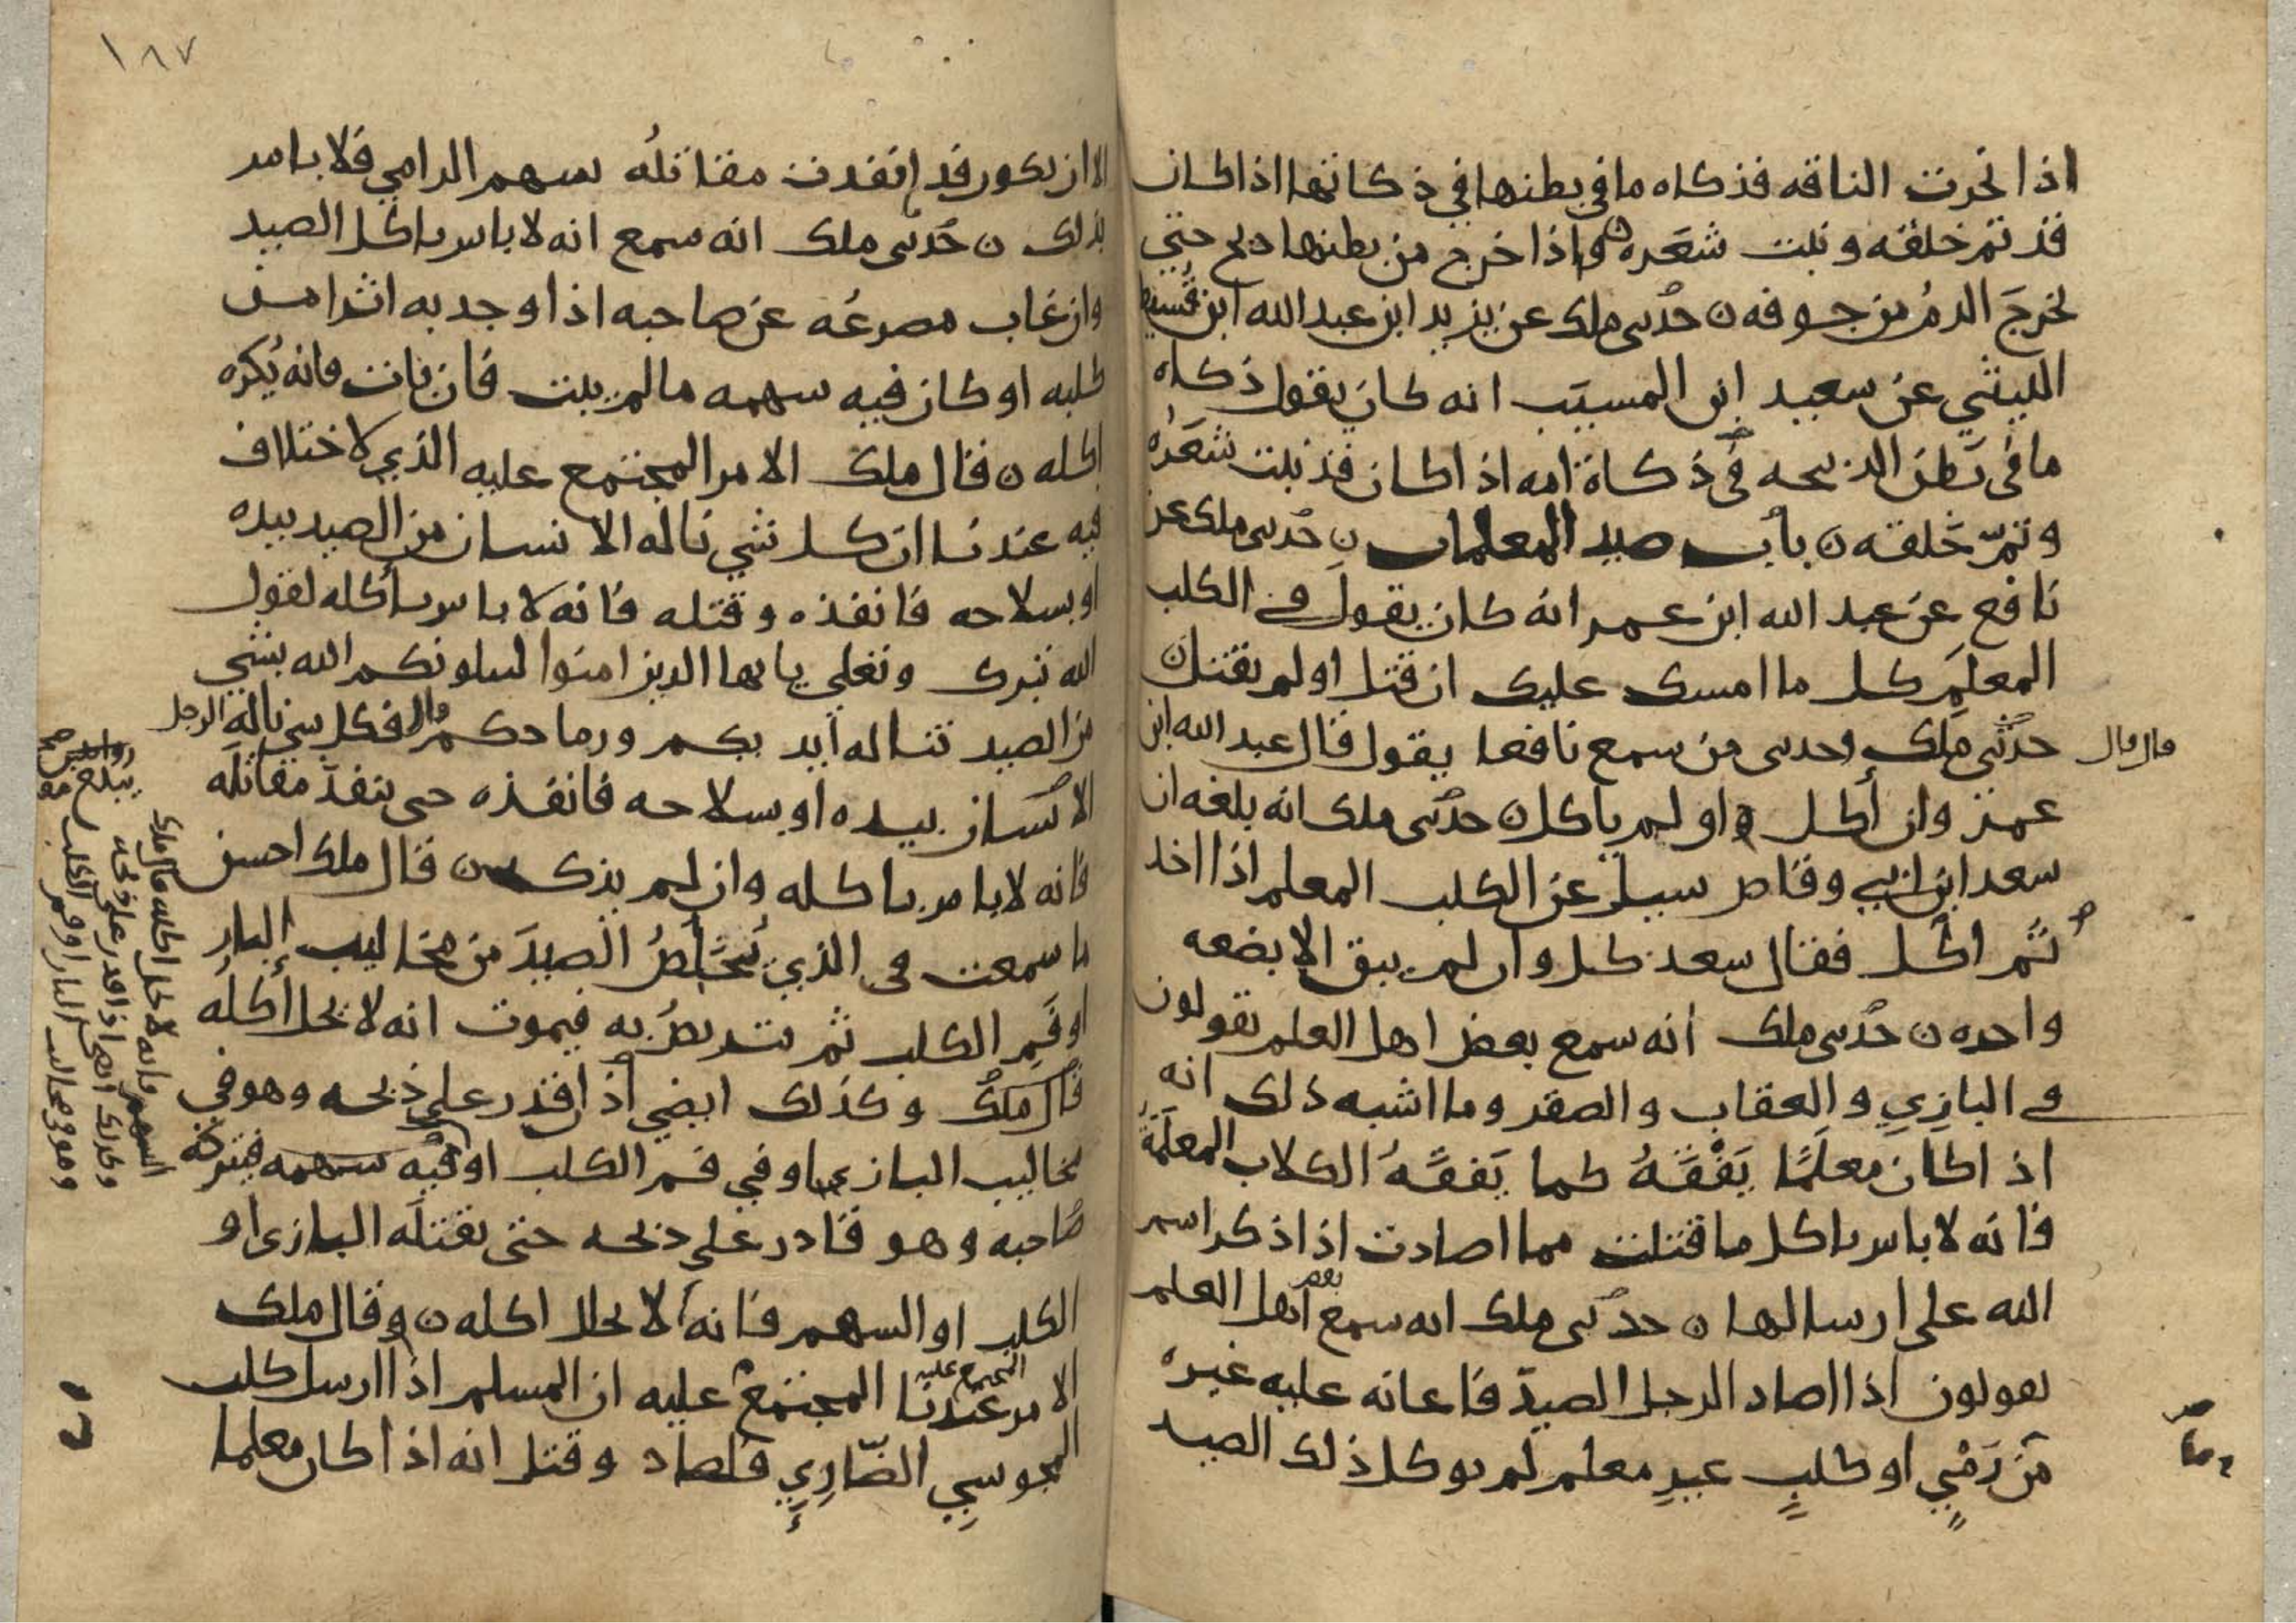 اذا نحرت الناقه فذكاه ما في بطنها في ذكاتها اذا كان
قد تم خلقه ونبت شعره واذا خرج من بطنها ذبح حتي
يخرج الدم من جوفه ن حدثني ملك عن يزيد ابن عبد الله ابن قسيط
الليثي عن سعيد ابن المسيب انه كان يقول ذكاه
ما في بطن الذبيحه في ذكاة امه اذا كان قد نبت شعره
وتم خلقه ن باب صيد المعلمات ن حدثني ملك عن
نافع عن عبد الله ابن عمر انه كان يقول في الكلب
المعلم كل ما امسك عليك ان قتل او لم يقتل ن
حدثني ملك وحدثني من سمع نافعا يقول قال عبد الله ابن
قال قال
عمر وان أكل او لم ياكل ن حدثني ملك انه بلغه ان
سعد ابن ابي وقاص سيل عن الكلب المعلم اذا اخذ
ثم اكل فقال سعد كل وان لم يبق الا بضعه
واحده ن حدثني ملك انه سمع بعض اهل العلم يقولون
في البازي والعقاب والصقر وما اشبه ذلك انه
اذا كان معلما يفقه كما يفقه الكلاب المعلمة
فانه لا باس باكل ما قتلت مما اصادت اذا ذكر اسم
الله على ارسالها ن حدثني ملك انه سمع بعض اهل العلم
يقولون اذا اصاد الرجل الصيد فاعانه عليه غيره
من رمي او كلب غير معلم لم يوكل ذلك الصيد
١٨٧
الا ان يكون قد انفدت مقاتله سهم الرامي فلا باس
بذلك ن حدثني ملك انه سمع انه لا باس باكل الصيد
وان غاب مصرعه عن صاحبه اذا وجد به اثرا من
كلبه او كان فيه سهمه ما لم يبت فان بات فانه يكره
اكله ن قال ملك الامر المجتمع عليه الذي لا اختلاف
فيه عندنا ان كل شي ناله الانسان من الصيد بيده
او بسلاحه فانفذه وقتله فانه لا باس باكله لقول
الله تبرك وتعلي يايها الذين امنوا ليبلونكم الله بشي
من الصيد تناله ايديكم ورماحكم قال فكل شي ناله الرجل
الانسان بيده او بسلاحه فانفذه حتى ينفذ مقاتله
فانه لا باس باكله وان لم يذك ن قال ملك احسن
ما سمعت في الذي يتخلص الصيد من مخاليب الباز
او فم الكلب ثم يتربص به فيموت انه لا يحل أكله
قال ملك وكذلك ايضي اذا قدر على ذبحه وهو في
مخاليب البازي او في فم الكلب او فيه سهمه فيتركه
صاحبه وهو قادر على ذبحه حتى يقتله البازي او
الكلب او السهم فانه لا يحل اكله ن وقال ملك
الامر عندنا المجتمع عليه ان المسلم اذا ارسل كلب
المجتمع عليه
المجوسي الضاري فصاد وقتل انه اذا كان معلما
السهم فانه لا يحل اكله قال ملك
وكذلك ايضا اذا قدر على ذبحه
وهو في مخاليب الباز او فم الكلب